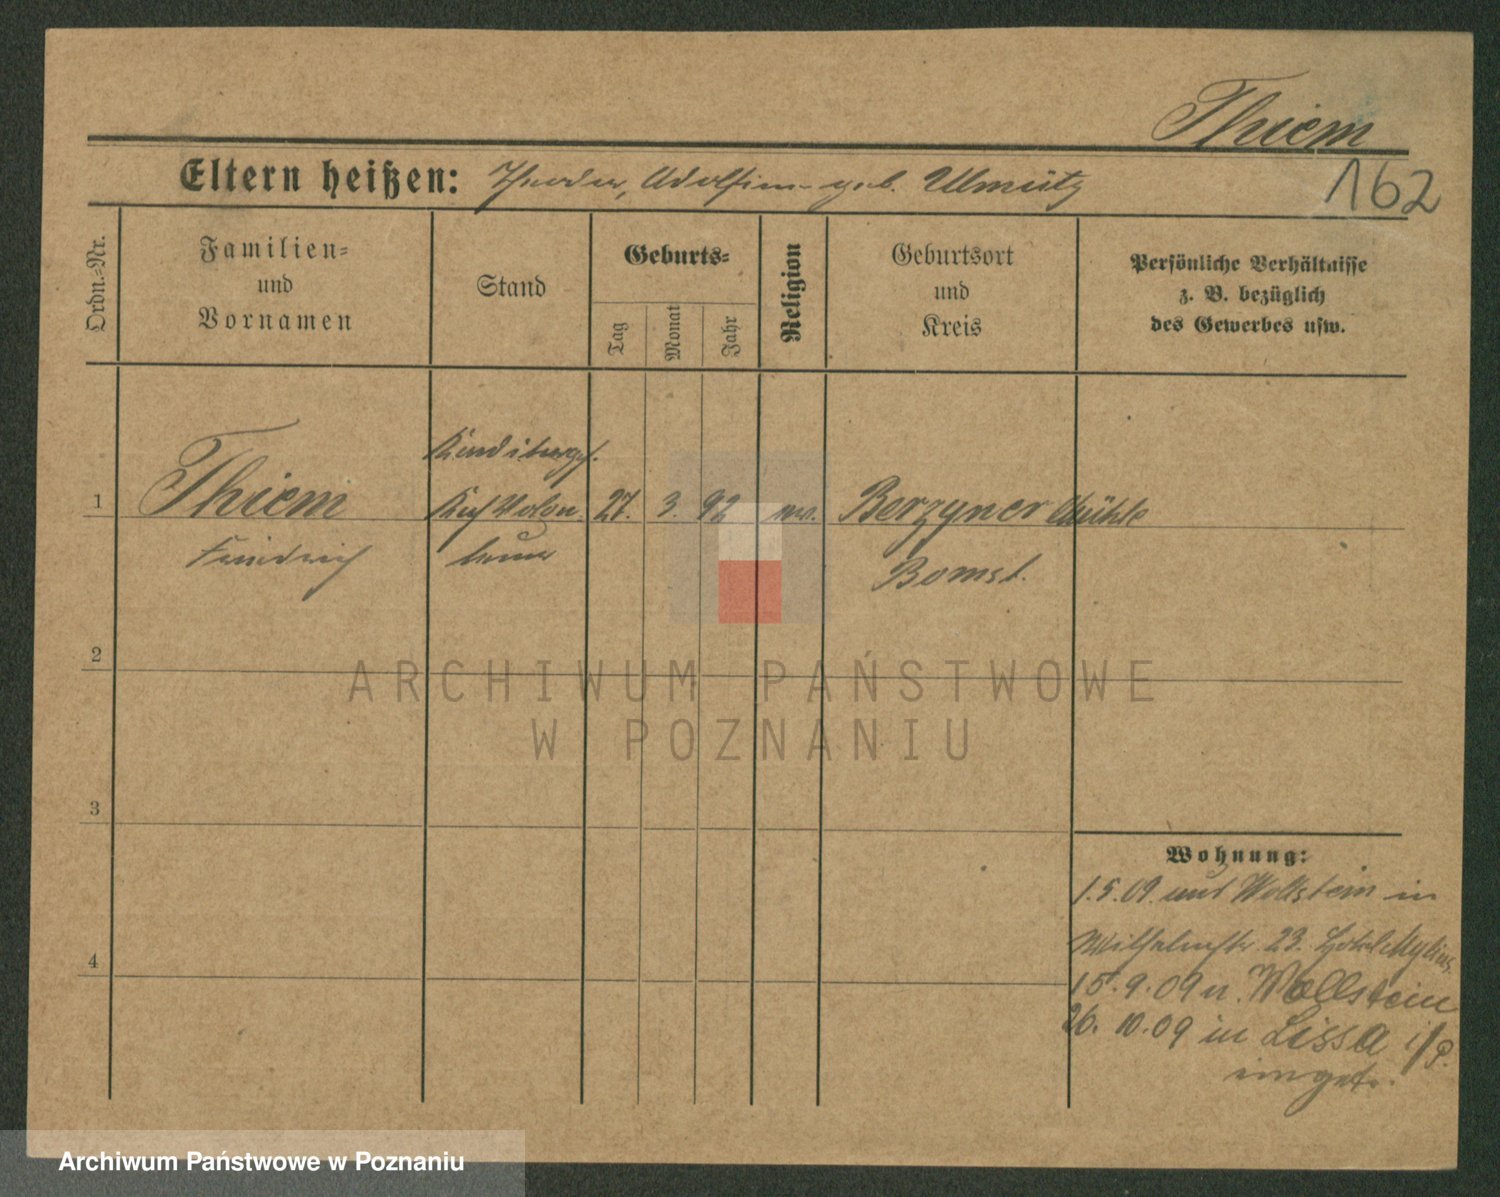 Thiem
162
Eltern heißen: Theodor, Adolfine geb. Ulmütz
Ordn.=Nr.
Familien=
und
Vornamen
Stand
Geburts=
Tag
Monat
Jahr
Religion
Geburtsort
und
Kreis
Persönliche Verhältnisse
z. B. bezüglich
des Gewerbes usw.
1
Thiem
Friedrich
27. 3. 92
Berzyner Mühle
Bomst.
2
3
4
ARCHIWUM PAŃSTWOWE
W POZNANIU
Wohnung:
1.5.09. Wollstein in
Wilhelmstr. 23. Hotel Mylius
15.9.09 n. Wollstein
26.10.09 in Lissa i/P.
eingetr.
Archiwum Państwowe w Poznaniu